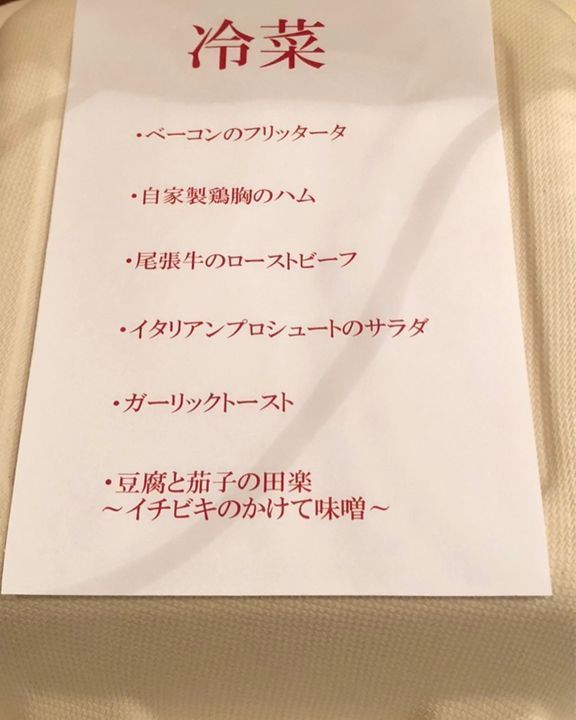 冷菜
・ベーコンのフリッタータ
・自家製鶏胸のハム
・尾張牛のローストビーフ
・イタリアンプロシュートのサラダ
・ガーリックトースト
・豆腐と茄子の田楽
～イチビキのかけて味噌～